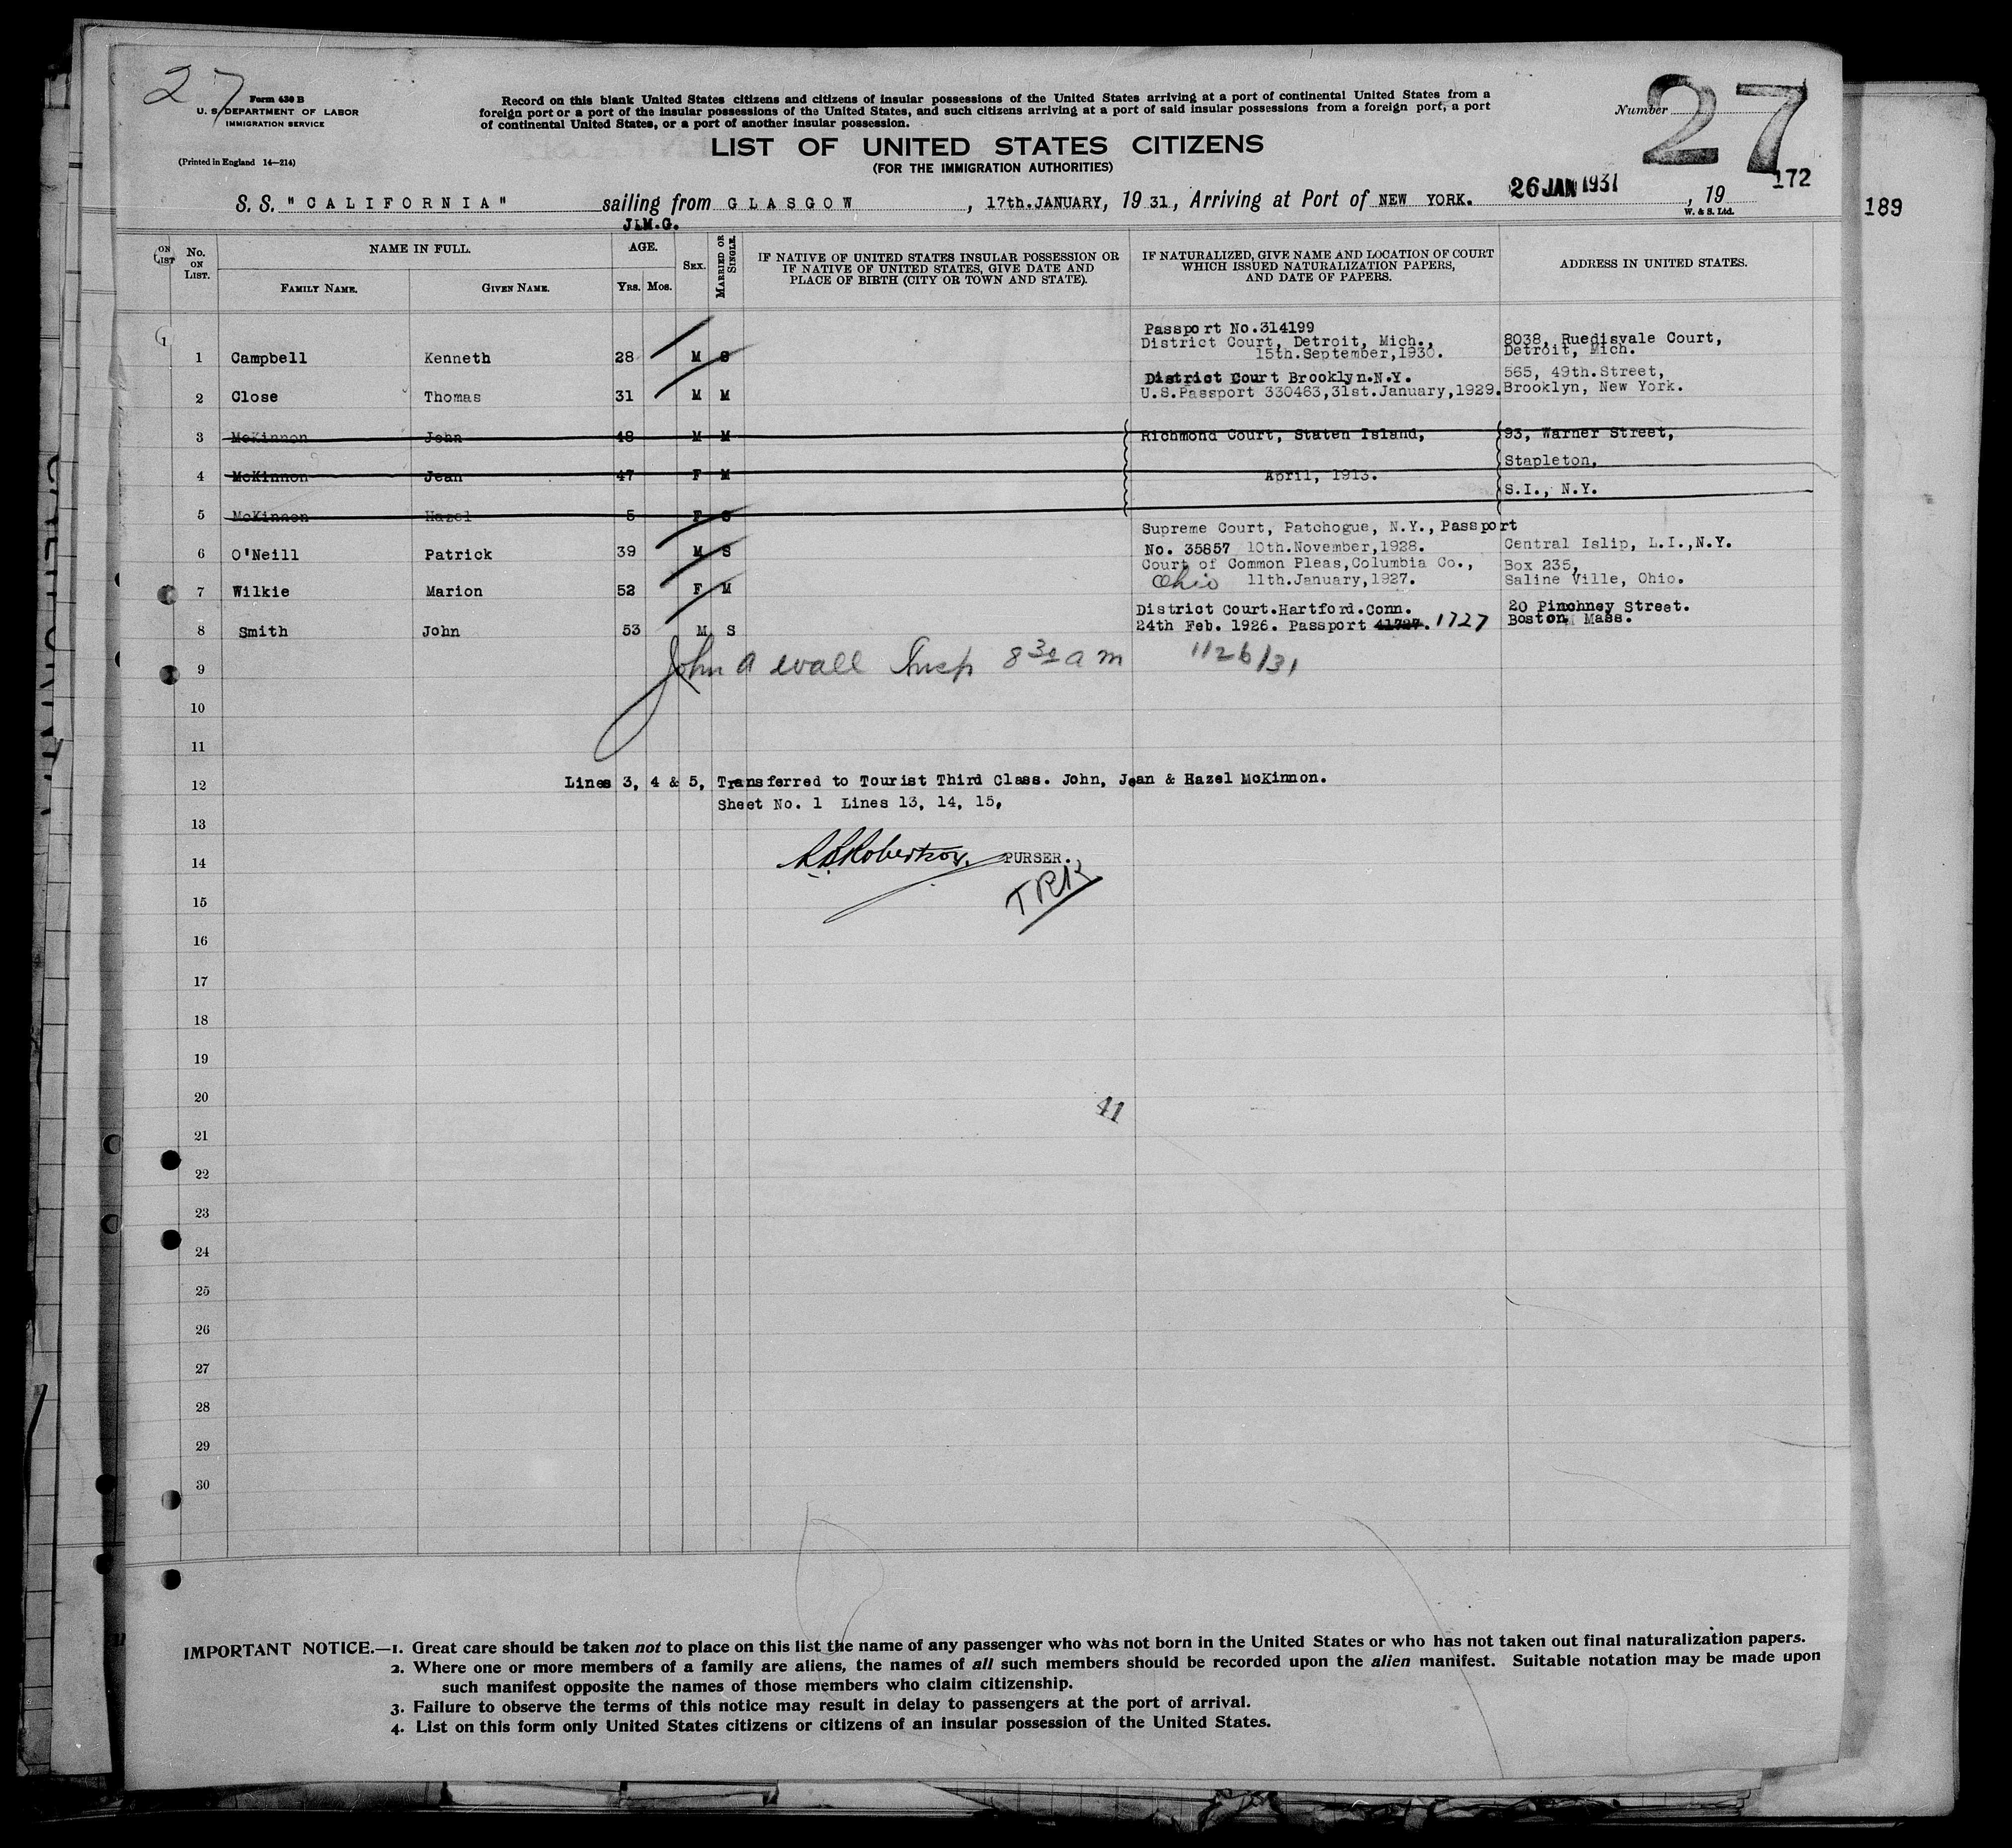 27
Form 630 B
U. S. DEPARTMENT OF LABOR
IMMIGRATION SERVICE
(Printed in England 14—214)
Record on this blank United States citizens and citizens of insular possessions of the United States arriving at a port of continental United States from a
foreign port or a port of the insular possessions of the United States, and such citizens arriving at a port of said insular possessions from a foreign port, a port
of continental United States, or a port of another insular possession.
Number 27
LIST OF UNITED STATES CITIZENS
(FOR THE IMMIGRATION AUTHORITIES)
172
189
S. S. "CALIFORNIA" sailing from GLASGOW, 17th.JANUARY, 1931, Arriving at Port of NEW YORK. 26 JAN 1931, 19
W. & S. Ltd.
J.M.G.
ON LIST
No. ON LIST.
NAME IN FULL.
FAMILY NAME. GIVEN NAME.
AGE.
YRS. MOS.
SEX.
MARRIED OR SINGLE.
IF NATIVE OF UNITED STATES INSULAR POSSESSION OR
IF NATIVE OF UNITED STATES, GIVE DATE AND
PLACE OF BIRTH (CITY OR TOWN AND STATE).
IF NATURALIZED, GIVE NAME AND LOCATION OF COURT
WHICH ISSUED NATURALIZATION PAPERS,
AND DATE OF PAPERS.
ADDRESS IN UNITED STATES.
1
Passport No.314199
District Court, Detroit, Mich., 8038, Ruedisvale Court,
1 Campbell Kenneth 28 M S 15th.September,1930. Detroit, Mich.
District Court Brooklyn.N.Y. 565, 49th.Street,
2 Close Thomas 31 M M U.S.Passport 330463,31st.January,1929. Brooklyn, New York.
3 McKinnon John 48 M M Richmond Court, Staten Island, 93, Warner Street,
Stapleton,
4 McKinnon Jean 47 F M April, 1913.
S.I., N.Y.
5 McKinnon Hazel 5 F S
Supreme Court, Patchogue, N.Y., Passport
6 O'Neill Patrick 39 M S No. 35857 10th.November,1928. Central Islip, L.I.,N.Y.
Court of Common Pleas,Columbia Co., Box 235,
7 Wilkie Marion 52 F M Ohio 11th.January,1927. Saline Ville, Ohio.
District Court.Hartford.Conn. 20 Pinchney Street.
8 Smith John 53 M S 24th Feb. 1926. Passport 41727. 1727 Boston Mass.
9 John A Wall Insp 8 30 a m 1/26/31
10
11
12 Lines 3, 4 & 5, Transferred to Tourist Third Class. John, Jean & Hazel McKinnon.
Sheet No. 1 Lines 13, 14, 15,
13
14 Robertson. PURSER.
TRK
15
16
17
18
19
20
41
21
22
23
24
25
26
27
28
29
30
IMPORTANT NOTICE.—1. Great care should be taken not to place on this list the name of any passenger who was not born in the United States or who has not taken out final naturalization papers.
2. Where one or more members of a family are aliens, the names of all such members should be recorded upon the alien manifest. Suitable notation may be made upon
such manifest opposite the names of those members who claim citizenship.
3. Failure to observe the terms of this notice may result in delay to passengers at the port of arrival.
4. List on this form only United States citizens or citizens of an insular possession of the United States.